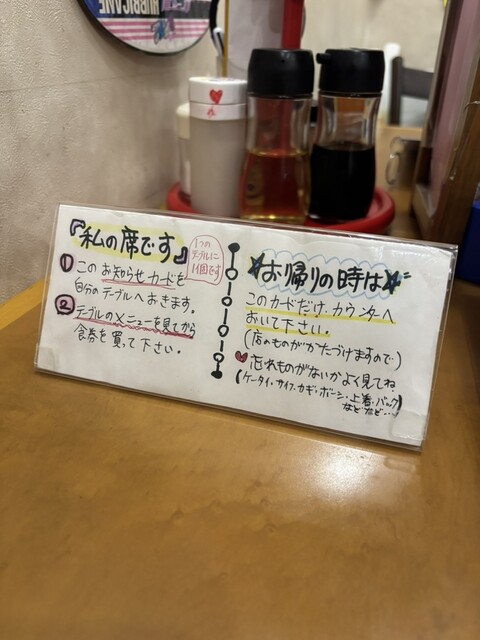 HURRICANE
『私の席です』
1つの
テーブルに
1個です
① このお知らせカードを
自分のテーブルへおきます。
② テーブルのメニューを見てから
食券を買って下さい。
★お帰りの時は★
このカードだけ、カウンターへ
おいて下さい。
(店のものがかたづけますので)
♥忘れものがないかよく見てね
(ケータイ・サイフ・カギ・ボーシ・上着・バック
などなど…)